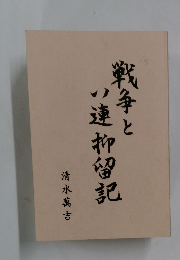 戦争と
い連抑留記
清水萬吉